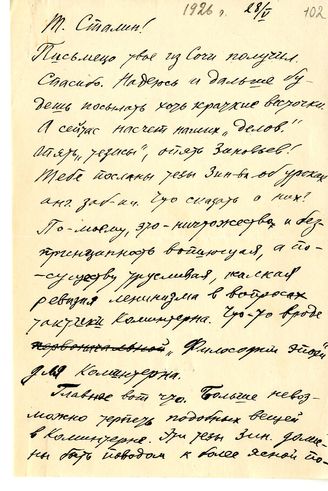 1926 г. 28/V 102
Т. Сталин!
Письмецо твое из Сочи получил.
Спасибо. Надеюсь и дальше бу-
дешь посылать хоть краткие весточки.
А сейчас насчет наших „делов".
Опять „тезисы", опять Зиновьев!
Тебе посланы тезы Зин-ва об уроках
анг. заб-ки. Что сказать о них?
По-моему, это-ничтожество и без-
принципность вопиющая, а по-
-существу трусливая, жалкая
ревизия ленинизма в вопросах
тактики Коминтерна. Что-то вроде
„Философии эпохи"
для Коминтерна.
Главное вот что. Больше невоз-
можно терпеть подобных вещей
в Коминтерне. Эти тезы Зин. долж-
ны быть поводом к более ясной по-